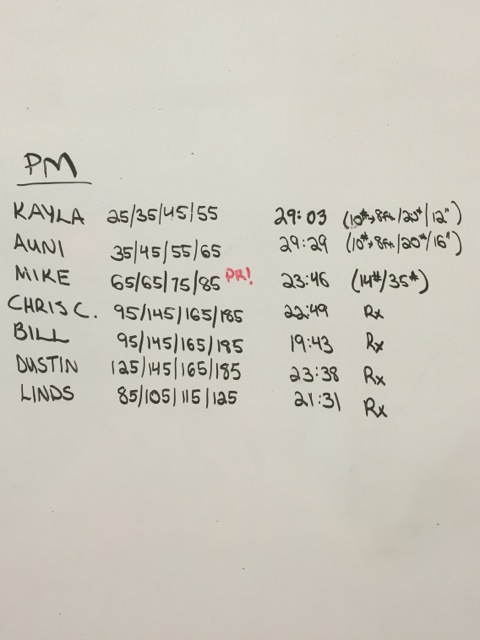 PM
KAYLA 25/35/45/55 29:03 (10#→8ft/20#/12")
AUNI 35/45/55/65 29:29 (10#→8ft/20#/16")
MIKE 65/65/75/85 PR! 23:46 (14#/35#)
CHRIS C. 95/145/165/185 22:49 Rx
BILL 95/145/165/195 19:43 Rx
DUSTIN 125/145/165/185 23:38 Rx
LINDS 85/105/115/125 21:31 Rx